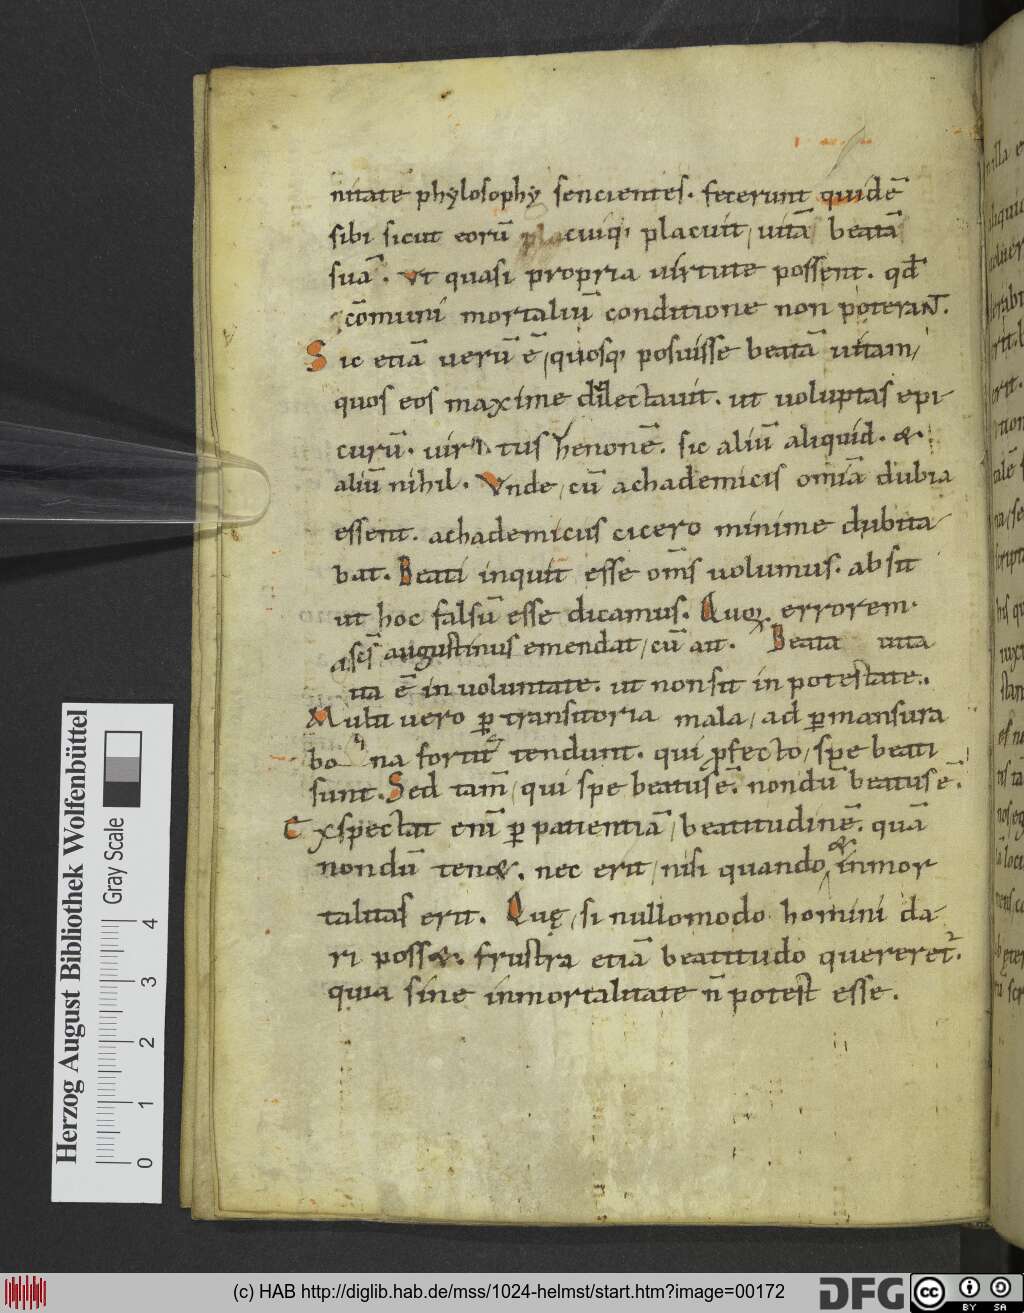 nitate phylosophy sencientes. fecerunt quidē
sibi sicut eorū cuiq; placuit, uitā beatā
suā. Vt quasi propria uirtute possent. qđ
cōmuni mortaliū conditione non poterant.
Sic etiā uerū ē, quosq; posuisse beatā uitam,
quos eos maxime dilectauit. ut uoluptas epi
curū. uirtus zenonē. sic aliū aliquid. &
aliū nihil. Vnde, cū achademicis omīa dubia
essent. achademicus cicero minime dubita
bat. Beati inquit esse om̄s uolumus. absit
ut hoc falsū esse dicamus. errorem.
scs̄ augustinus emendat, cū ait. Beata uita
ita ē in uoluntate. ut non sit in potestate.
Multi uero ꝑ transitoria mala, ad ꝑmansura
bona fortit̄ tendunt. qui ꝓfecto, spe beati
sunt. Sed tam̄, qui spe beatus ē. nondū beatus ē.
Exspectat enī ꝑ patientiā, beatitudinē. quā
nondū ten&. nec erit, nisi quando & inmor
talitas erit. Quę, si nullomodo homini da
ri poss&. frustra etiā beatitudo querer&.
quia sine inmortalitate n̄ potest esse.
Herzog August Bibliothek Wolfenbüttel
Gray Scale
0 1 2 3 4
(c) HAB http://diglib.hab.de/mss/1024-helmst/start.htm?image=00172
DFG
cc
BY SA